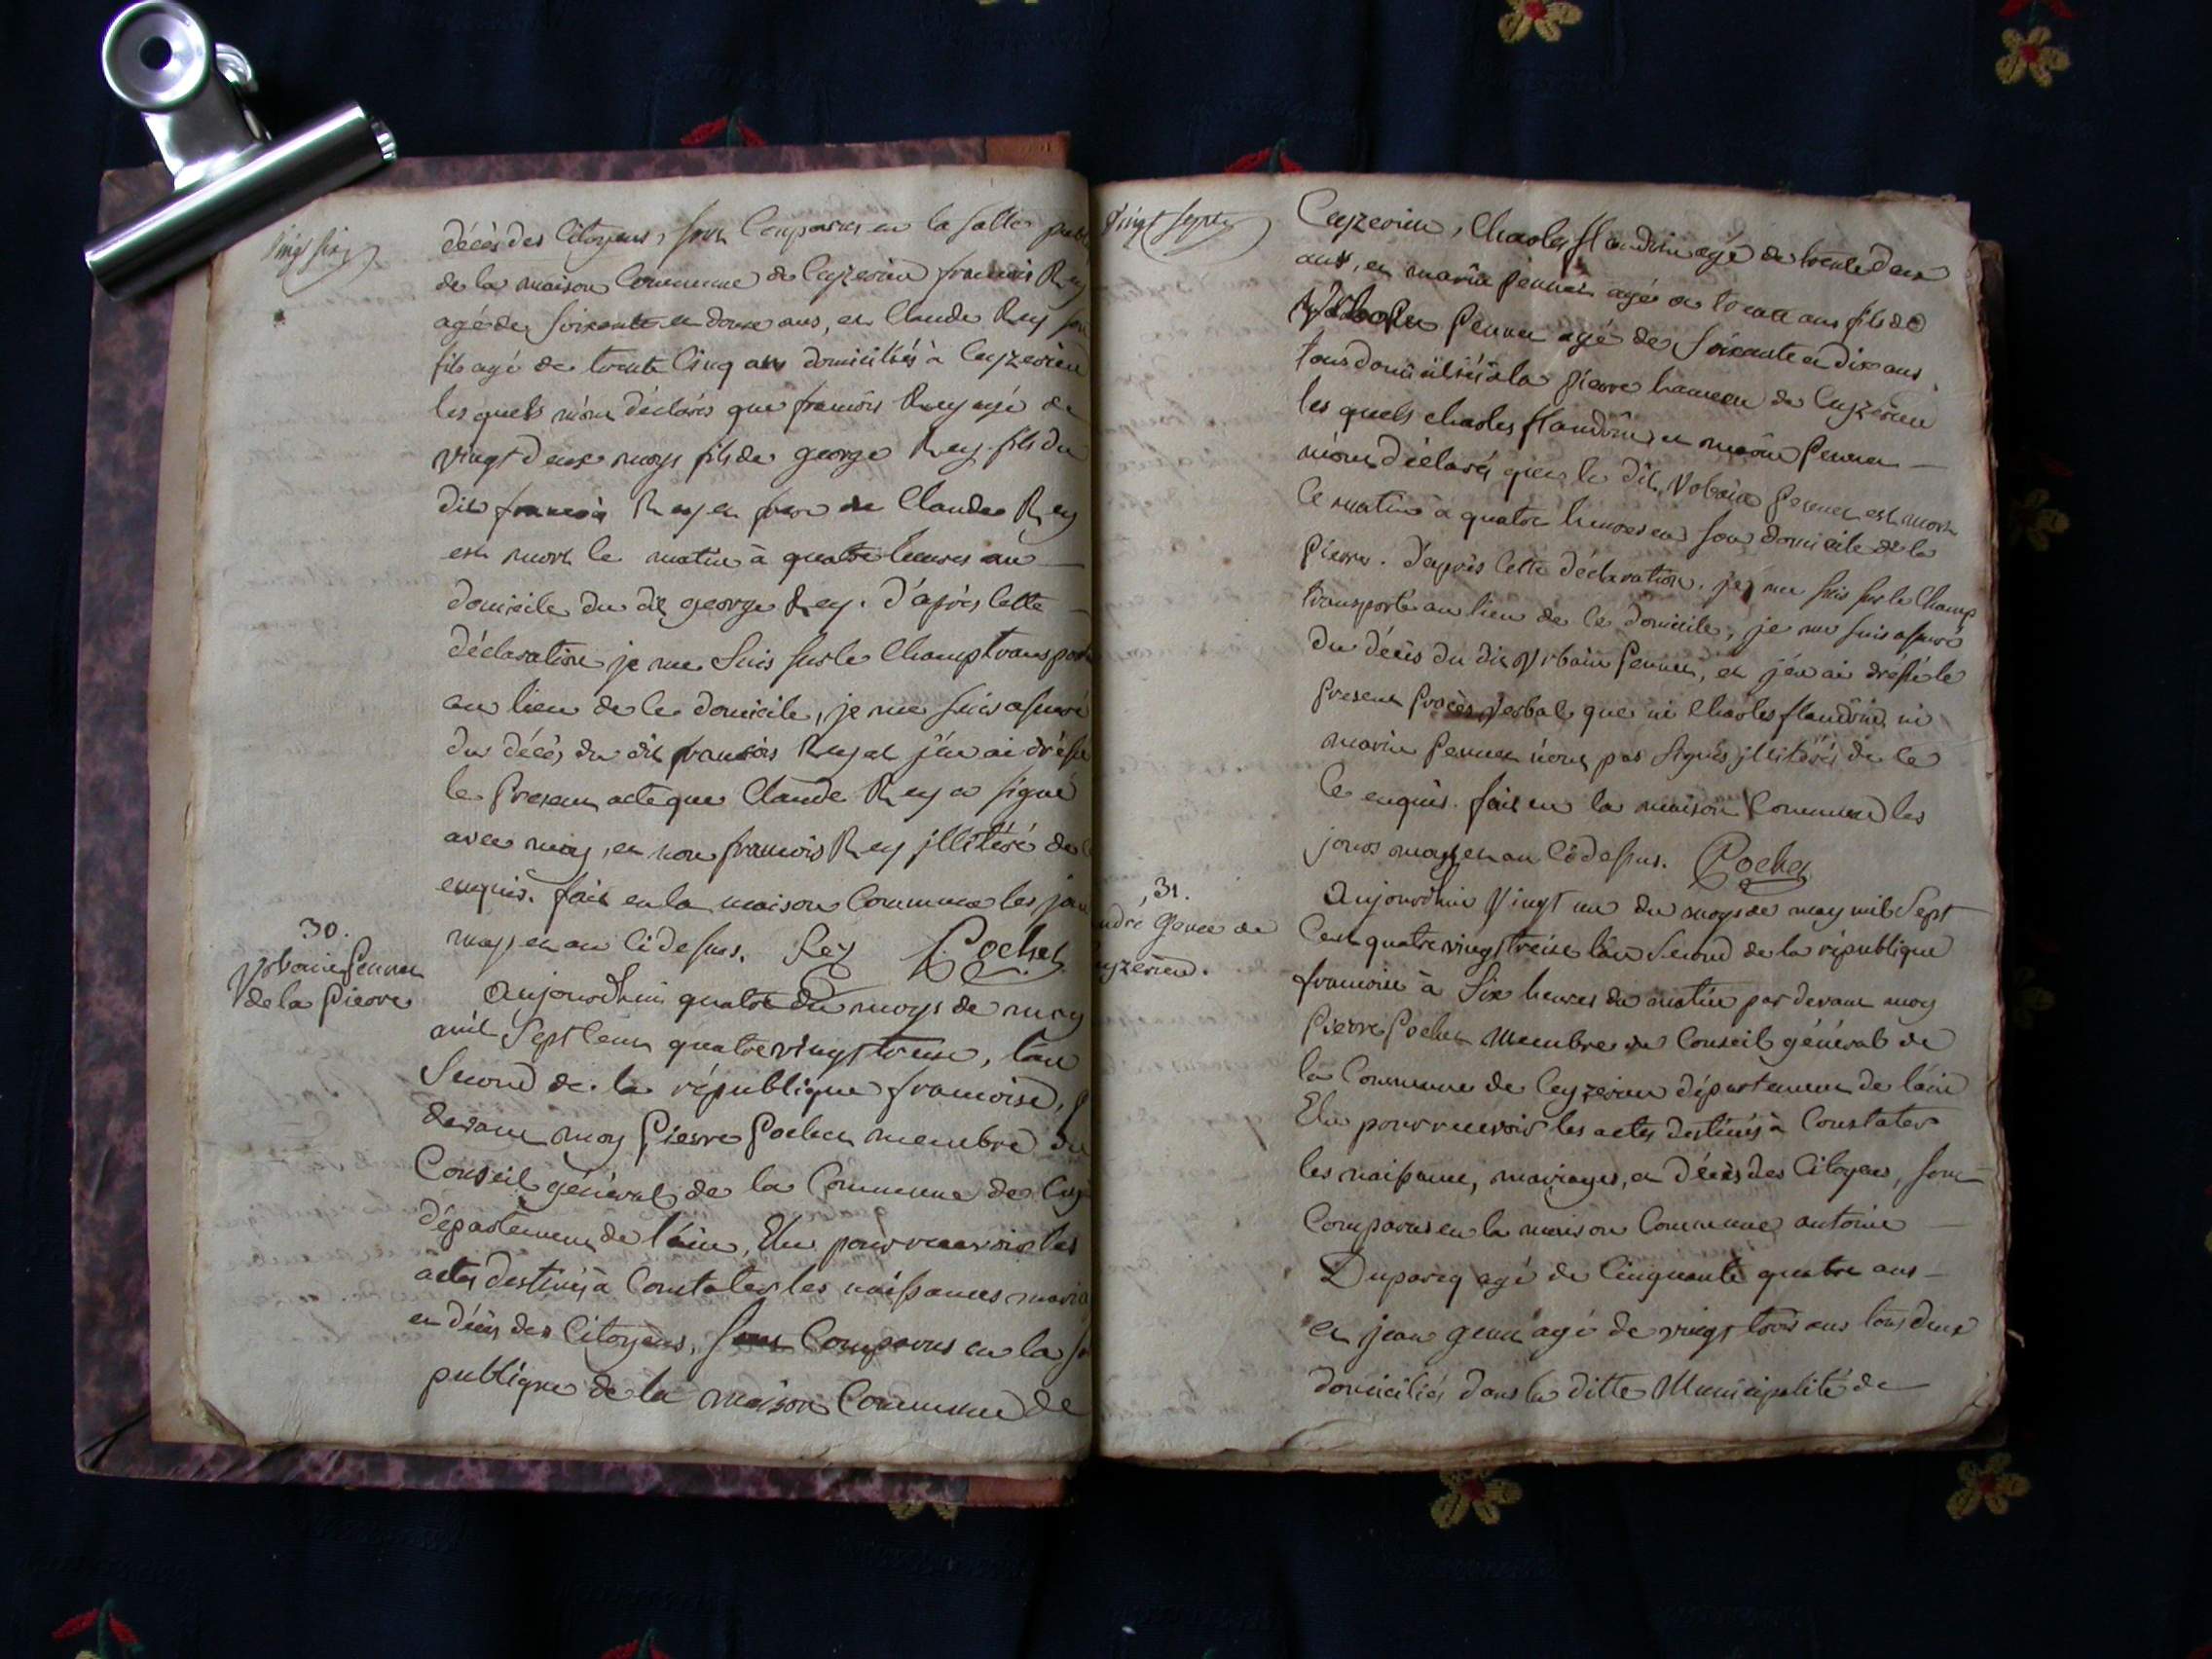 vingt six
décès des Citoyens, sont Comparus en la salle
de la maison Commune de Ceyzerieu francois Rey
agé de soixante et douze ans, et Claude Rey son
fils agé de trente Cinq ans domiciliés à Ceyzerieu
les quels m'ont déclarés que francois Rey agé de
vingt deux moys fils de george Rey fils du
dit francois Rey et frere de Claude Rey
est mort le matin à quatre heures au
domicile du dit george Rey. d'après cette
déclaration je me suis sur le Champ transporté
au lieu de ce domicile, je me suis assuré
du décès du dit francois Rey et j'en ai dréssé
le present acte que Claude Rey a signé
avec moy, et non francois Rey jllitéré de
enquis. fait en la maison Commune les jour
moys et an ci dessus. Rey Pochet
30.
Vrbain Pennet
de la Pierre
Aujourdhui quatre du moys de may
mil sept cent quatre vingt treise, l'an
second de la république francoise,
devant moy Pierre Pochet membre du
Conseil général de la Commune de
département de l'ain, Elu pour recevoir les
actes destinés à Constater les naissances
et décès des Citoyens, sont Comparus en la
publique de la maison Commune de
vingt sept
Ceyzerieu, Charles flandrin agé de trente deux
ans, et marin Pennet agé de ans fils de
Vrbain Pennet agé de soixante et dix ans
tous domiciliés à la Pierre hameau de Ceyzerieu
les quels Charles flandrin et marin Pennet
m'ont déclarés que le dit Vrbain Pennet est mort
ce matin à quatre heures en son domicile de la
Pierre. d'après cette déclaration. je me suis sur le Champ
transporté au lieu de ce domicile, je me suis assuré
du décès du dit Vrbain Pennet, et j'en ai dréssé le
present procès verbal que ni Charles flandrin ni
marin Pennet n'ont pas signés jllitérés de ce
ce enquis. fait en la maison Commune les
jours moys et an ci dessus. Pochet
31.
Genet de
Aujourdhui vingt un du moys de may mil sept
Cent quatre vingt treise l'an second de la république
francoise à six heures du matin par devant moy
Pierre Pochet Membre du Conseil général de
la Commune de Ceyzerieu département de l'ain
Elu pour recevoir les actes destinés à Constater
les naissance, mariages, et décès des Citoyens, sont
Comparus en la maison Commune antoine
Duparcq agé de Cinquante quatre ans
et jean genet agé de vingt trois ans tous deux
domiciliés dans la ditte Municipalité de